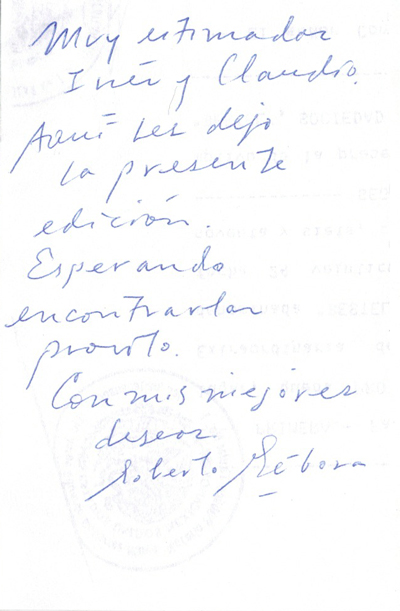 Muy estimados
Inés y Claudio.
Aquí les dejo
la presente
edición.
Esperando
encontrarlos
pronto.
Con mis mejores
deseos
Roberto Rébora